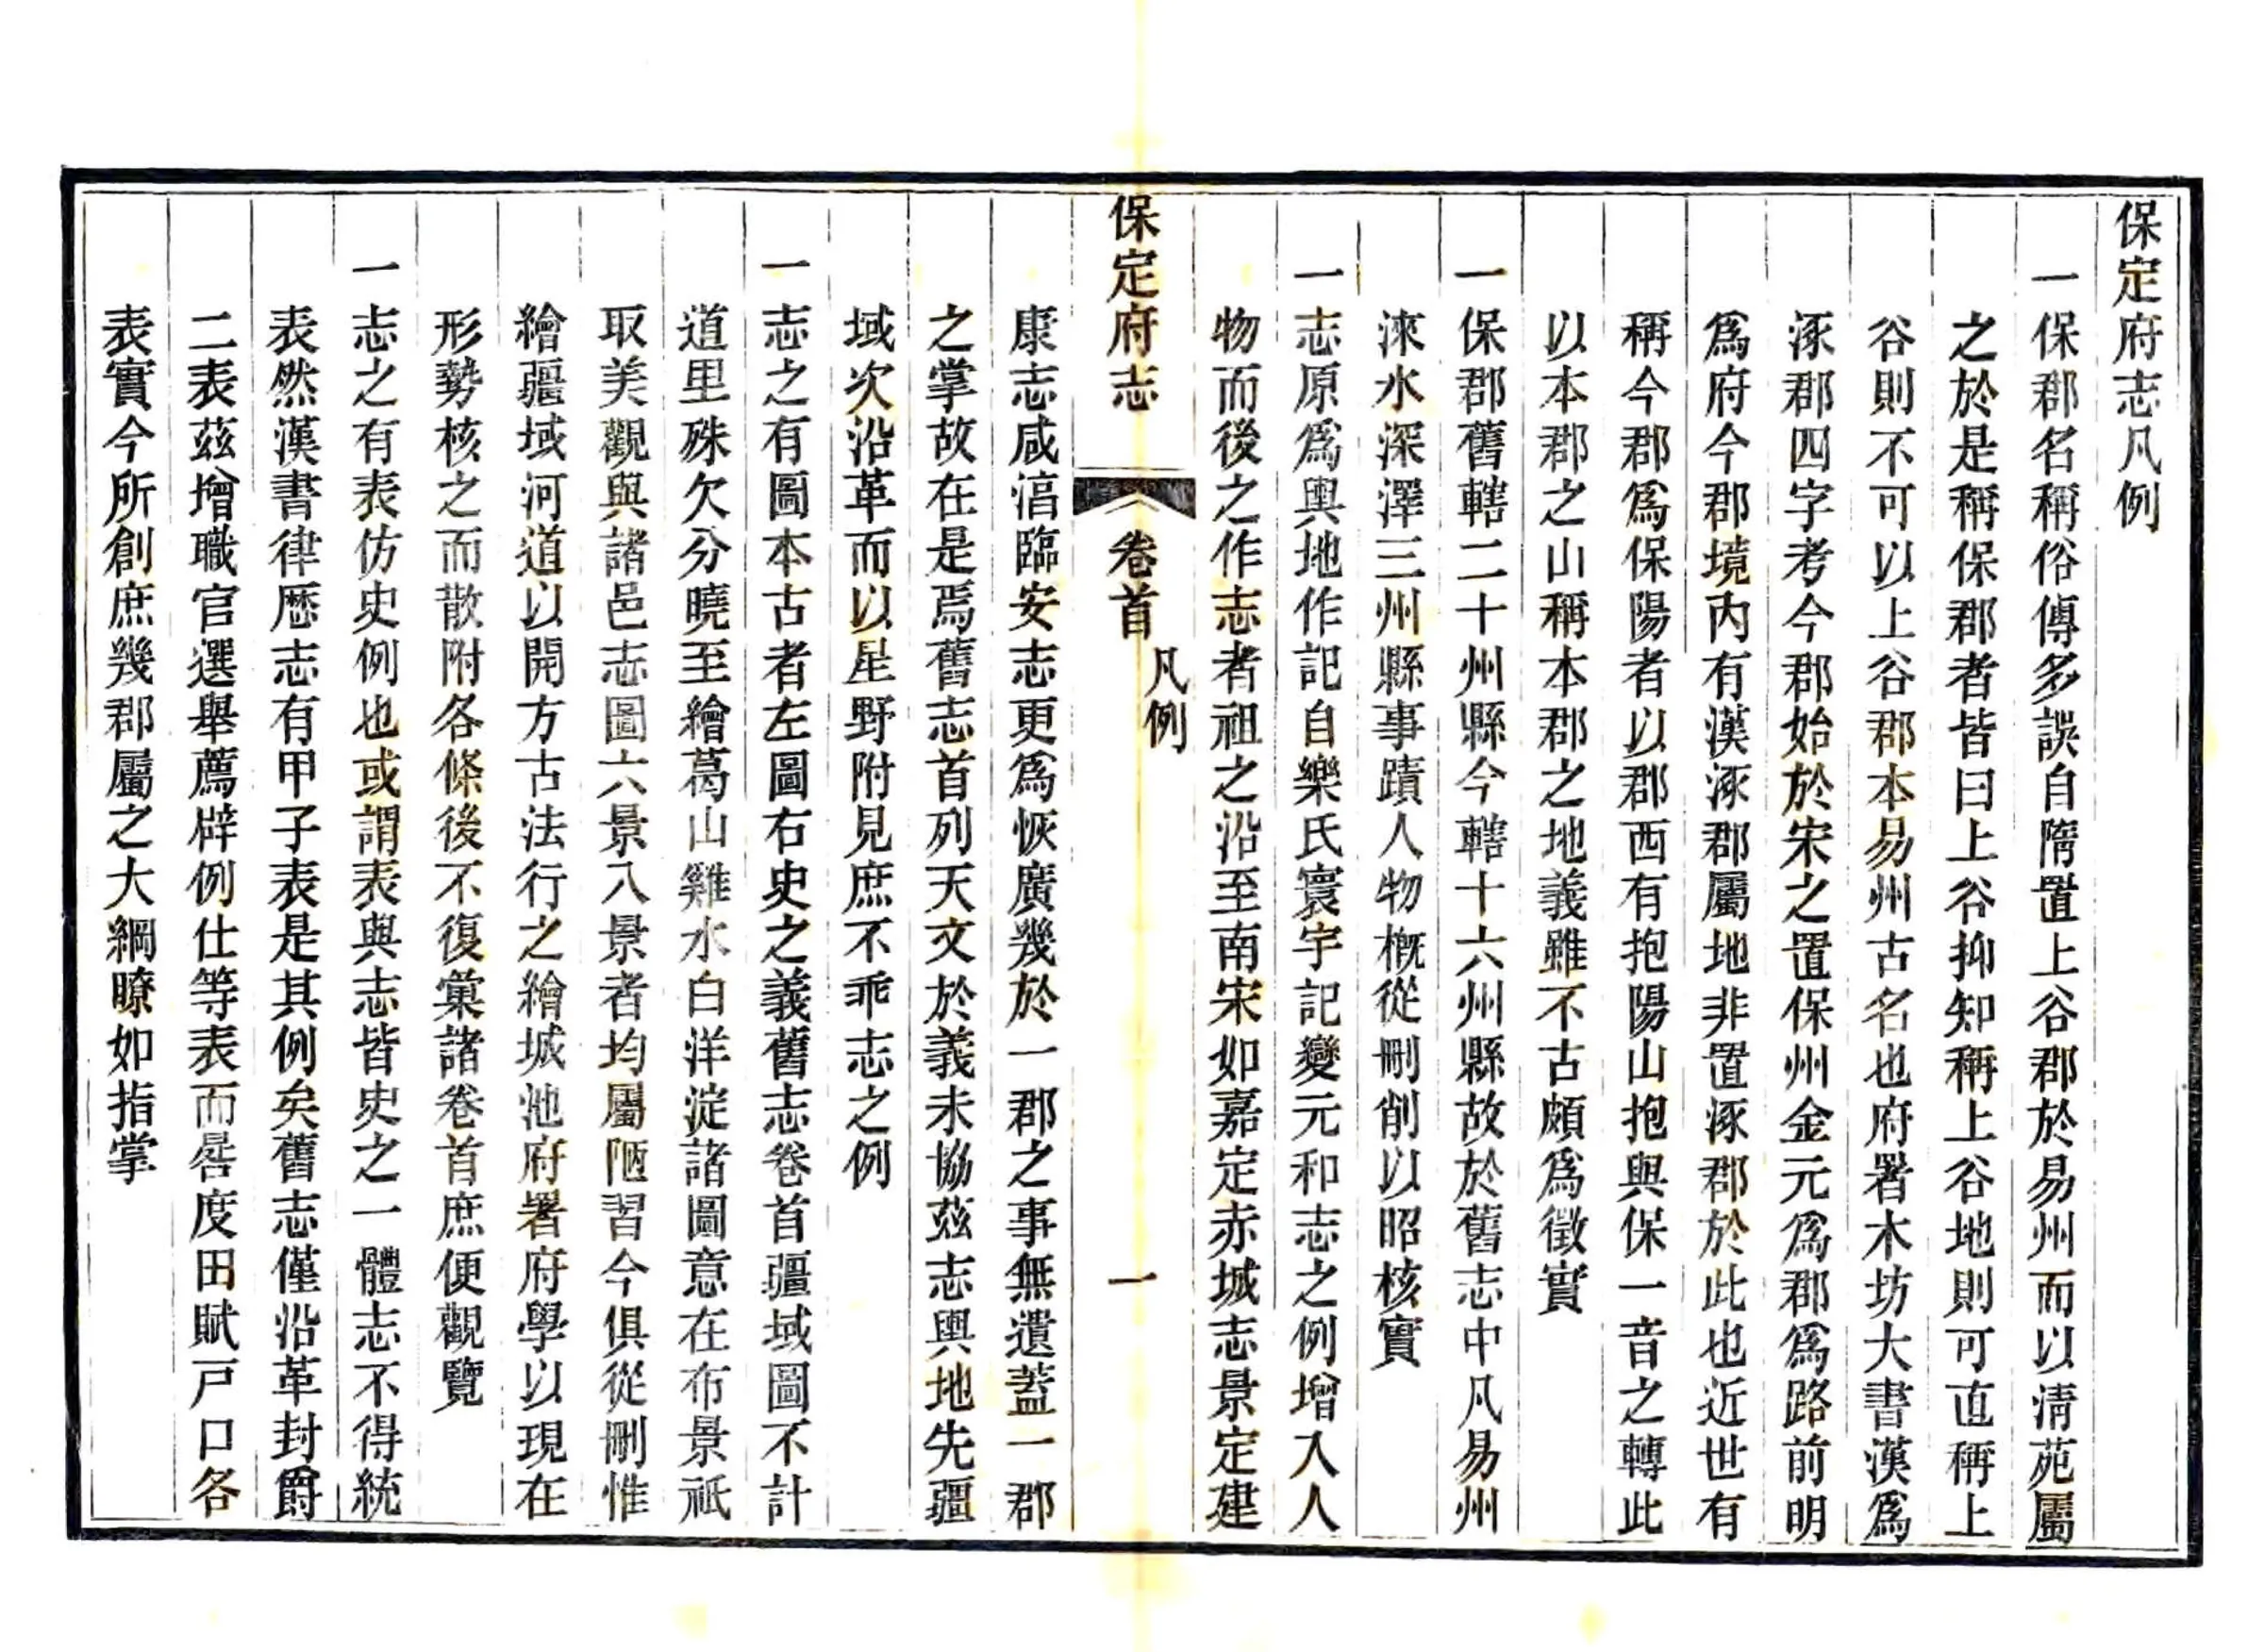 保定府志凡例
一保郡名稱俗傳多誤自隋置上谷郡於易州而以清苑屬
之於是稱保郡者皆曰上谷抑知稱上谷地則可直稱上
谷則不可以上谷郡本易州古名也府署木坊大書漢爲
涿郡四字考今郡始於宋之置保州金元爲郡爲路前明
爲府今郡境內有漢涿郡屬地非置涿郡於此也近世有
稱今郡爲保陽者以郡西有抱陽山抱與保一音之轉此
以本郡之山稱本郡之地義雖不古頗爲徵實
一保郡舊轄二十州縣今轄十六州縣故於舊志中凡易州
淶水深澤三州縣事蹟人物概從刪削以昭核實
一志原爲輿地作記自樂氏寰宇記變元和志之例增入人
物而後之作志者祖之沿至南宋如嘉定赤城志景定建
保定府志
卷首
凡例
一
康志咸湻臨安志更爲恢廣幾於一郡之事無遺蓋一郡
之掌故在是焉舊志首列天文於義未協茲志輿地先疆
域次沿革而以星野附見庶不乖志之例
一志之有圖本古者左圖右史之義舊志卷首疆域圖不計
道里殊欠分曉至繪葛山雞水白洋淀諸圖意在布景祇
取美觀與諸邑志圖六景八景者均屬陋習今俱從刪惟
繪疆域河道以開方古法行之繪城池府署府學以現在
形勢核之而散附各條後不復彙諸卷首庶便觀覽
一志之有表仿史例也或謂表與志皆史之一體志不得統
表然漢書律歷志有甲子表是其例矣舊志僅沿革封爵
二表茲增職官選舉薦辟例仕等表而晷度田賦戸口各
表實今所創庶幾郡屬之大綱瞭如指掌